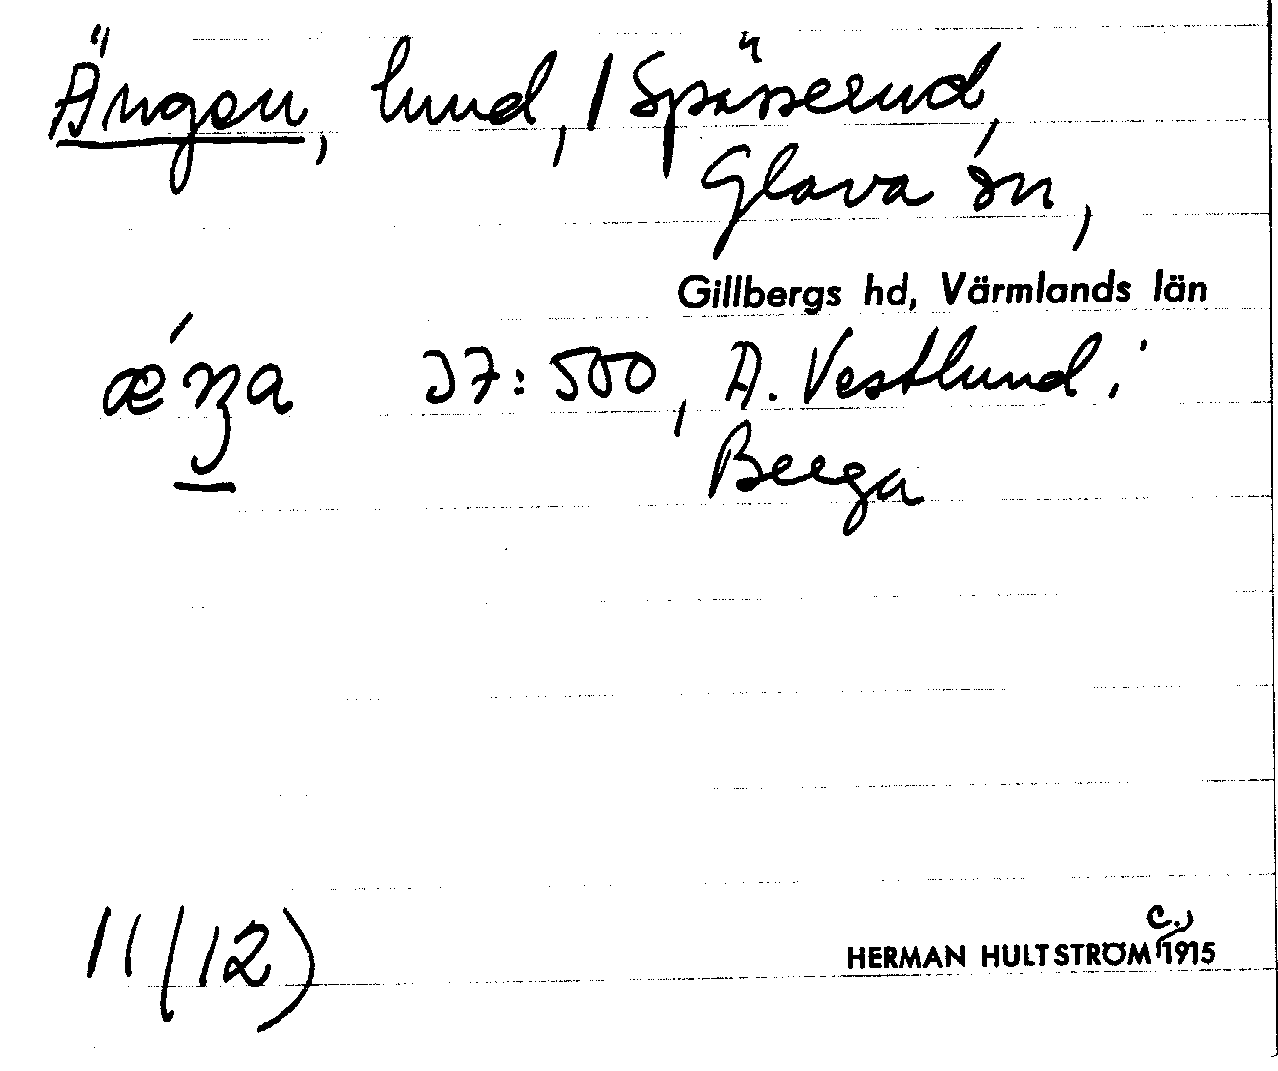 Ängen, lund, / Spässerud,
Glava sn,
Gillbergs hd, Värmlands län
27:500, A. Vestlund i
Berga
11(12)
HERMAN HULTSTRÖM c.) 1915